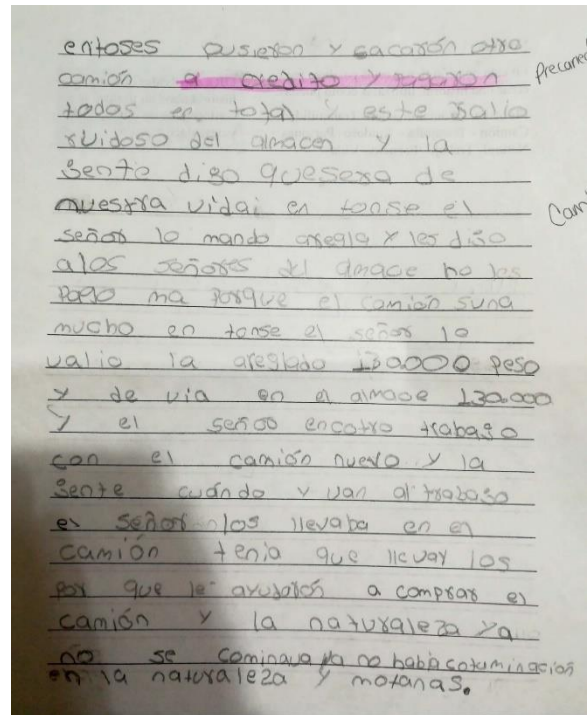 entoses pusieron y sacarón otro
camión a credito y pagaron
todos en total y este salio
ruidoso del almacen y la
gente digo quesera de
nuestra vida en tonse el
señor lo mando aregla y les diso
alos señores del almace no les
pago ma porque el camión suna
mucho en tonse el señor lo
valio la areglado 130.000 peso
y de via en el almace 130.000
y el señoo encotro trabaso
con el camión nuevo y la
gente cuándo y van al trabaso
el señor los llevaba en el
camión tenia que llevar los
por que le ayudarón a comprar el
camión y la naturaleza ya
no se cominava ya no habia cotuminacion
en la naturaleza y motanas.